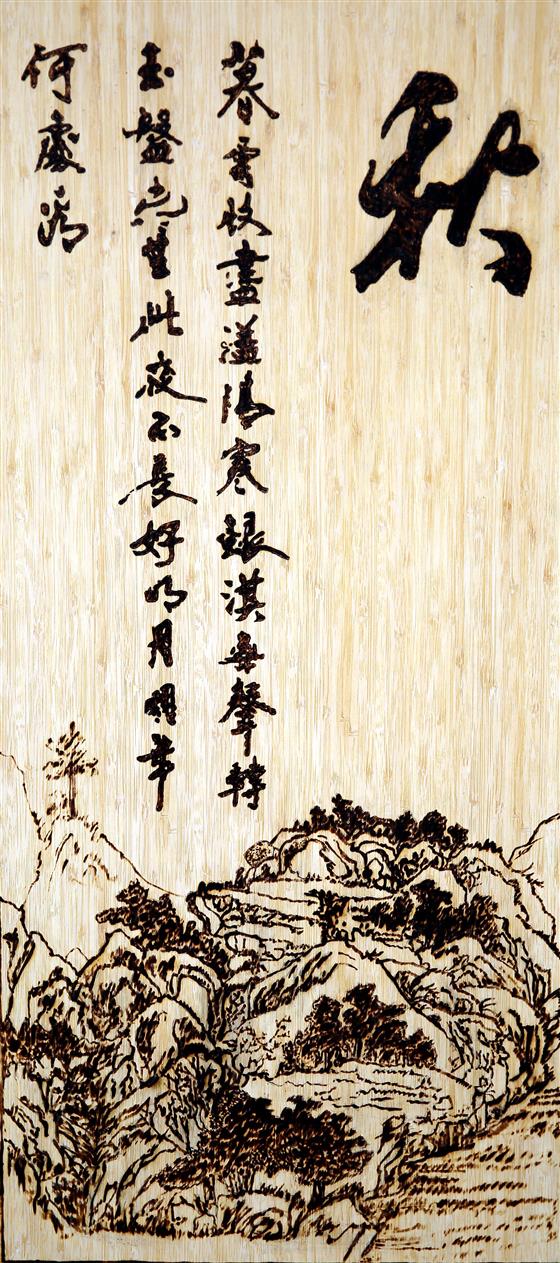 秋
暮雲收盡溢清寒銀漢無聲轉
玉盤此生此夜不長好明月明年
何處看